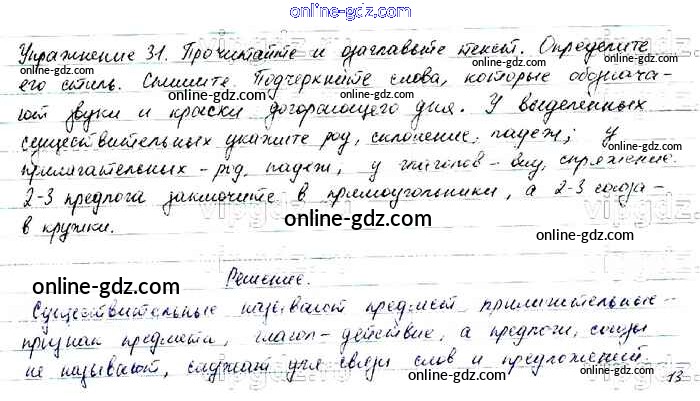 online-gdz.com
Упражнение 31. Прочитайте и озаглавьте текст. Определите
его стиль. Спишите. Подчеркните слова, которые обознача-
ют звуки и краски догорающего дня. У выделенных
существительных укажите род, склонение, падеж; у
прилагательных - род, падеж, у глаголов - вид, спряжение.
2-3 предлога заключите в прямоугольники, а 2-3 союза -
в кружки.
Решение.
Существительные называют предмет, прилагательные -
признак предмета, глагол - действие, а предлоги, союзы
не называют, служат для связи слов и предложений.
13